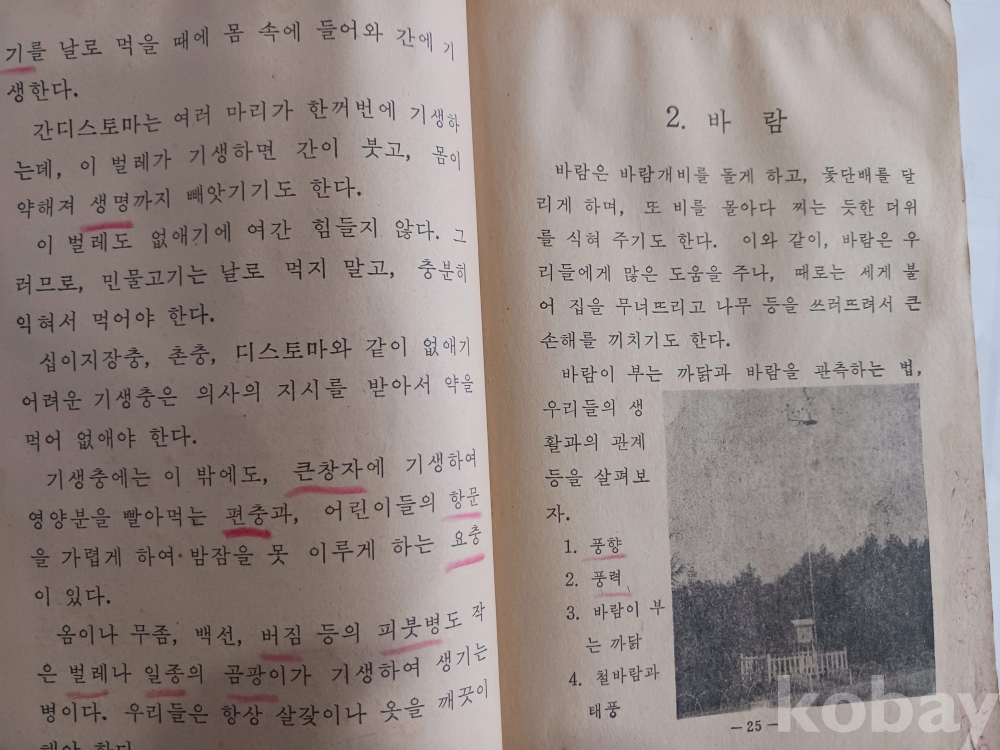 기를 날로 먹을 때에 몸 속에 들어와 간에 기
생한다.
간디스토마는 여러 마리가 한꺼번에 기생하
는데, 이 벌레가 기생하면 간이 붓고, 몸이
약해져 생명까지 빼앗기기도 한다.
이 벌레도 없애기에 여간 힘들지 않다. 그
러므로, 민물고기는 날로 먹지 말고, 충분히
익혀서 먹어야 한다.
십이지장충, 촌충, 디스토마와 같이 없애기
어려운 기생충은 의사의 지시를 받아서 약을
먹어 없애야 한다.
기생충에는 이 밖에도, 큰창자에 기생하여
영양분을 빨아먹는 편충과, 어린이들의 항문
을 가렵게 하여 밤잠을 못 이루게 하는 요충
이 있다.
옴이나 무좀, 백선, 버짐 등의 피붓병도 작
은 벌레나 일종의 곰팡이가 기생하여 생기는
병이다. 우리들은 항상 살갗이나 옷을 깨끗이
해야 한다.
2. 바 람
바람은 바람개비를 돌게 하고, 돛단배를 달
리게 하며, 또 비를 몰아다 찌는 듯한 더위
를 식혀 주기도 한다. 이와 같이, 바람은 우
리들에게 많은 도움을 주나, 때로는 세게 불
어 집을 무너뜨리고 나무 등을 쓰러뜨려서 큰
손해를 끼치기도 한다.
바람이 부는 까닭과 바람을 관측하는 법,
우리들의 생
활과의 관계
등을 살펴보
자.
1. 풍향
2. 풍력
3. 바람이 부
는 까닭
4. 철바람과
태풍
—25—
kobay